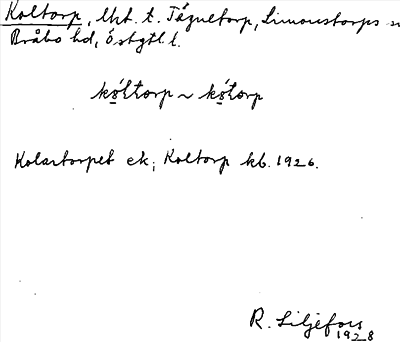 Koltorp, lht. t. Tégneltorp, Simonstorps sn
Bråbo hd, Östgtl. l.
kóltorp ~ kótorp
Kolartorpet ek; Koltorp kb. 1926.
R. Liljefors
1928